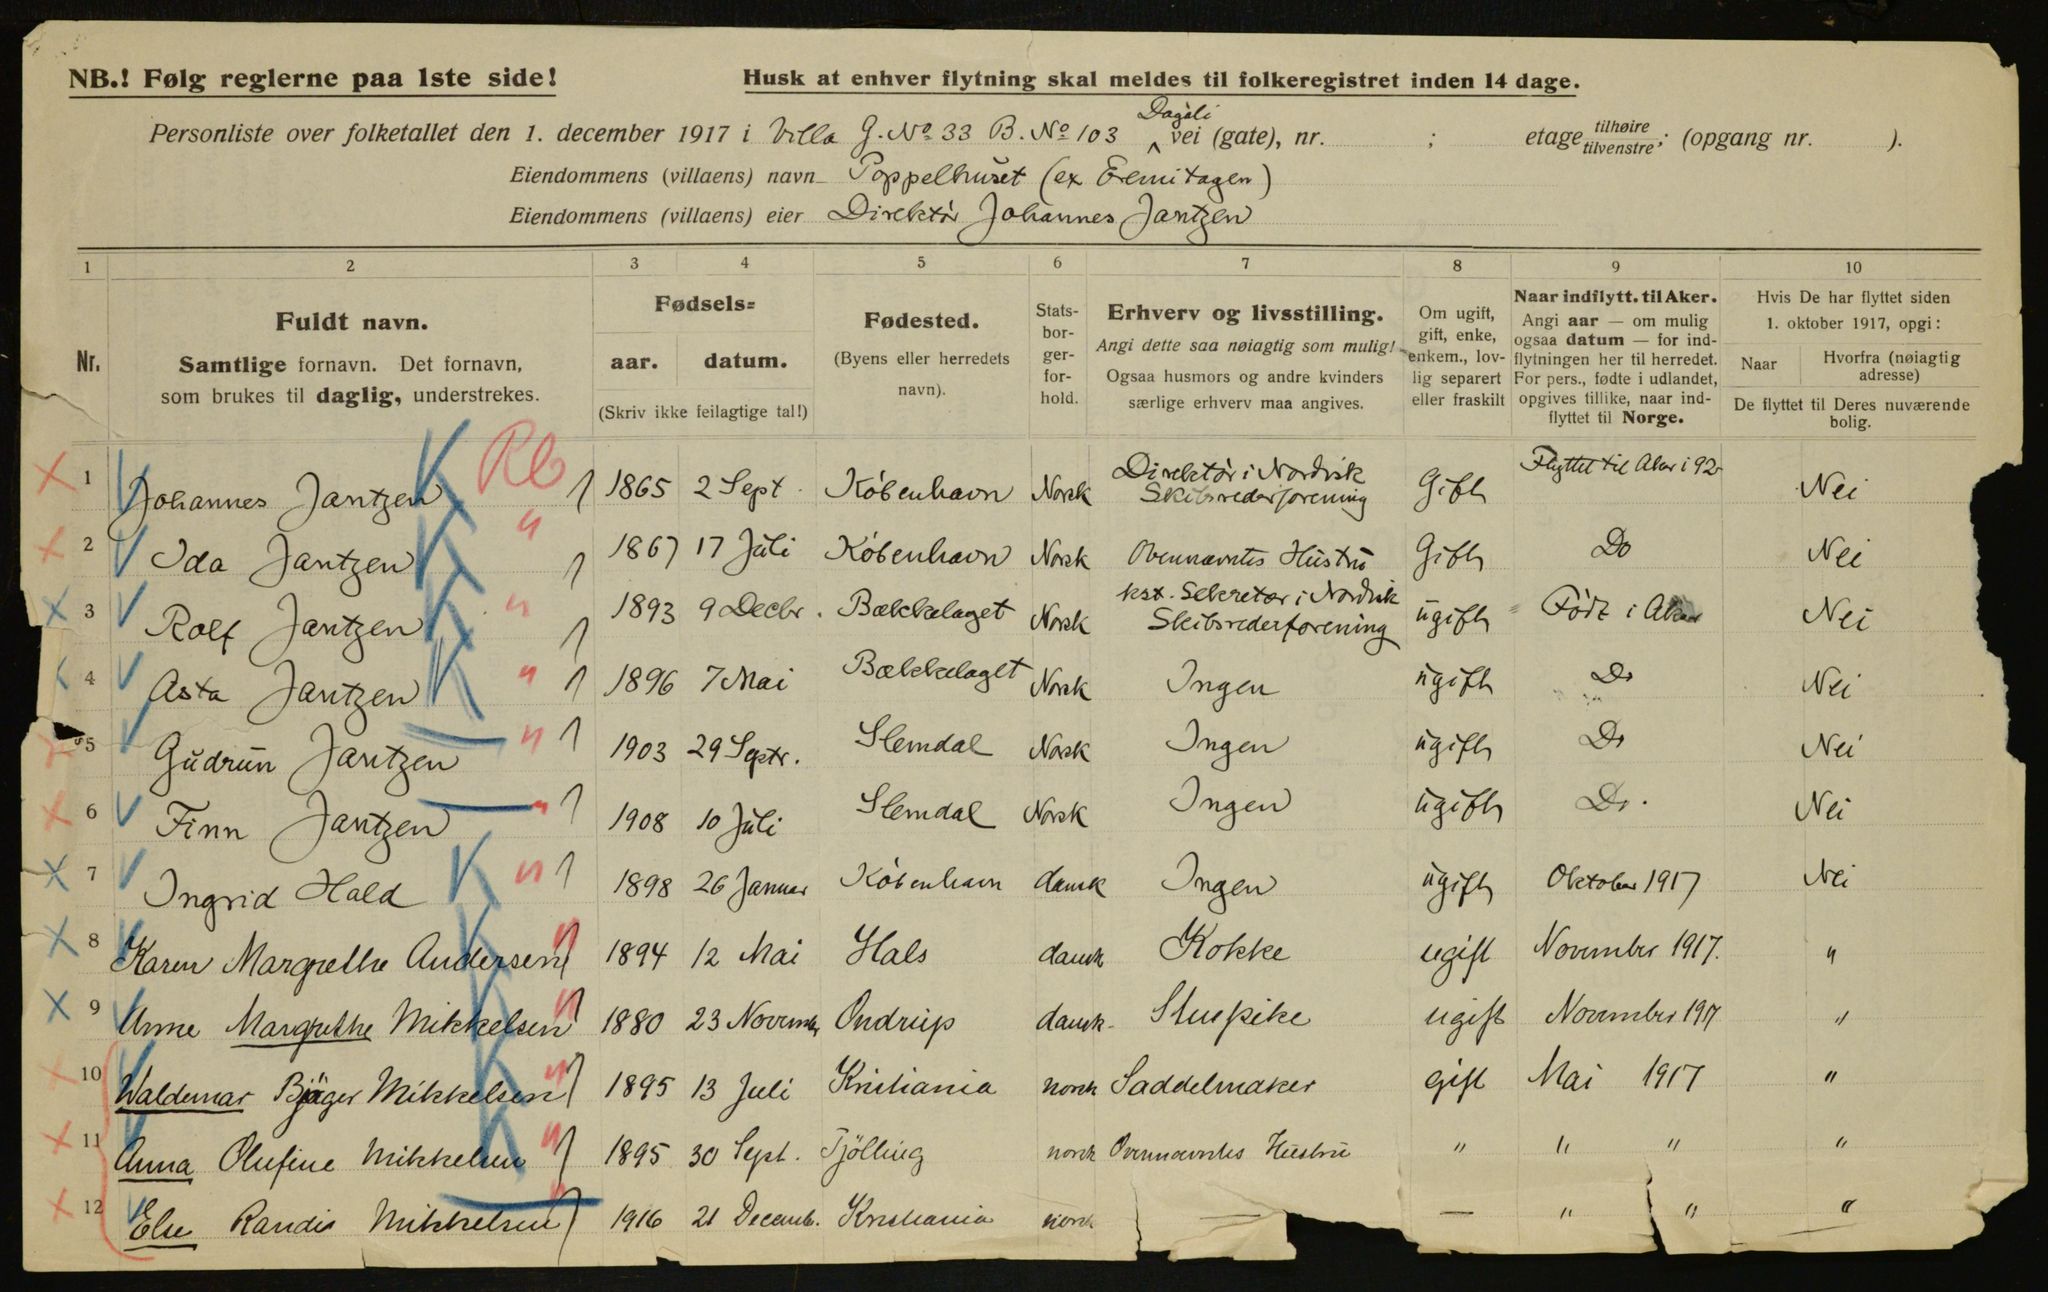 NB.! Følg reglerne paa 1ste side!
Husk at enhver flytning skal meldes til folkeregistret inden 14 dage.
Personliste over folketallet den 1. december 1917 i Villa G. No 33 B. No 103 Dagali vei (gate), nr. ; etage tilhøire tilvenstre; (opgang nr. ).
Eiendommens (villaens) navn Poppelhuset (ex Eremitagen)
Eiendommens (villaens) eier Direktør Johannes Jantzen
1 2 3 4 5 6 7 8 9 10
Nr.
Fuldt navn.
Samtlige fornavn. Det fornavn,
som brukes til daglig, understrekes.
Fødsels=
aar. datum.
(Skriv ikke feilagtige tal!)
Fødested.
(Byens eller herredets
navn).
Stats-
bor-
ger-
for-
hold.
Erhverv og livsstilling.
Angi dette saa nøiagtig som mulig!
Ogsaa husmors og andre kvinders
særlige erhverv maa angives.
Om ugift,
gift, enke,
enkem., lov-
lig separert
eller fraskilt
Naar indflytt. til Aker.
Angi aar — om mulig
ogsaa datum — for ind-
flytningen her til herredet.
For pers., fødte i udlandet,
opgives tillike, naar ind-
flyttet til Norge.
Hvis De har flyttet siden
1. oktober 1917, opgi:
Naar Hvorfra (nøiagtig
adresse)
De flyttet til Deres nuværende
bolig.
1 Johannes Jantzen K 1865 2 Sept. København Norsk Direktør i Nordisk Skibsrederforening Gift Flyttet til Aker i 92 Nei
2 Ida Jantzen K " 1867 17 Juli København Norsk Ovennævntes Hustru Gift Do Nei
3 Rolf Jantzen K " 1893 9 Decbr. Bækkelaget Norsk kst. Sekretær i Nordisk Skibsrederforening ugift Født i Aker Nei
4 Asta Jantzen K " 1896 7 Mai Bækkelaget Norsk Ingen ugift Do Nei
5 Gudrun Jantzen " 1903 29 Septr. Slemdal Norsk Ingen ugift Do Nei
6 Finn Jantzen " 1908 10 Juli Slemdal Norsk Ingen ugift Do. Nei
7 Ingrid Hald K " 1898 26 Januar København dansk Ingen ugift Oktober 1917 Nei
8 Karen Margrethe Andersen K " 1894 12 Mai Hals dansk Kokke ugift November 1917. "
9 Anne Margrethe Mikkelsen K " 1880 23 November Ondrup dansk Stuepike ugift November 1917 "
10 Waldemar Bjäger Mikkelsen K " 1895 13 Juli Kristiania norsk Saddelmaker gift Mai 1917 "
11 Anna Olufine Mikkelsen K " 1895 30 Sept. Tjölling norsk Ovennævntes Hustru " " " "
12 Else Randi Mikkelsen " 1916 21 Decemb. Kristiania norsk — — " " "